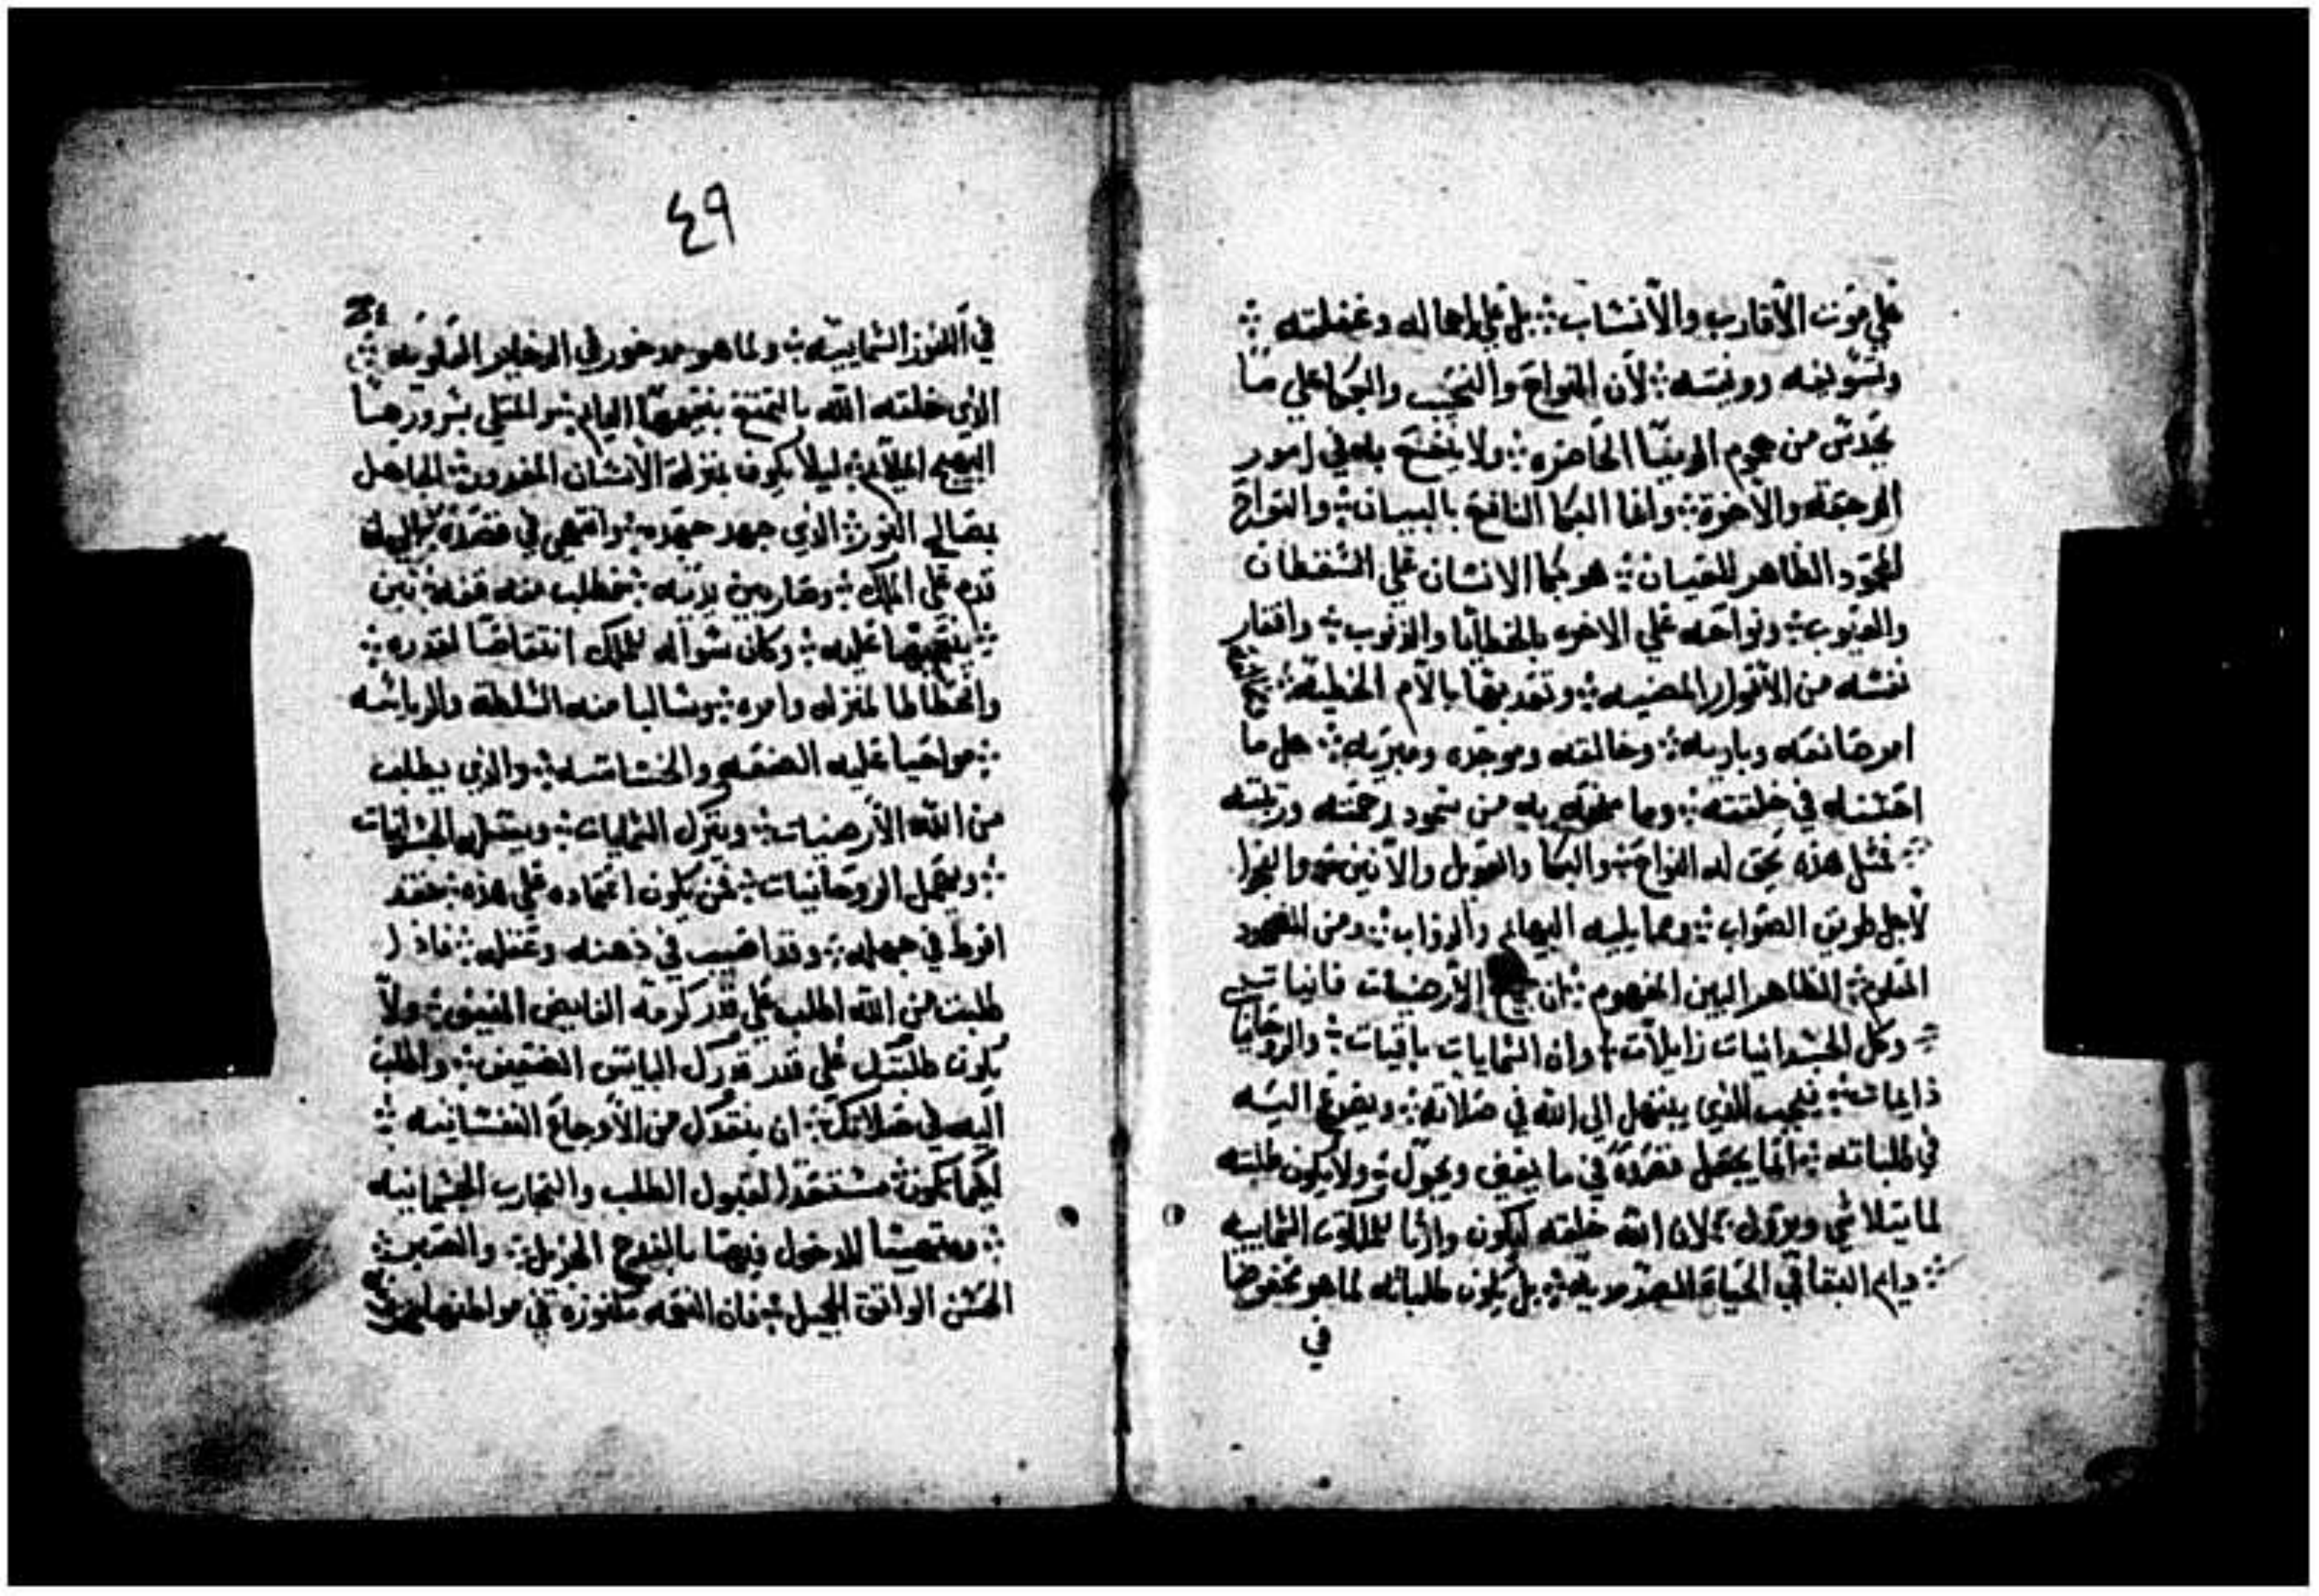 علي موت الأقارب والأنساب ؞ بل علي اهماله وغفلته ؞
وتسويفه وونيته ؞ لأن النواح والنحيب والبكا علي ما
يحدث من هموم الدنيا الحاضره ؞ ولا ينتفع به في امور
الرجعه والاخرة ؞ وانما البكا النافع بالبيان ؞ والنواح
المحمود الظاهر للعيان ؞ هو بكا الانسان علي النقصان
والعيوب ؞ ونواحه علي الاخره بالخطايا والذنوب ؞ وافتقار
نفسه من الأنوار المضيه ؞ وتعذيبها بالآم الخطية ؞
امر صانعه وباريه ؞ وخالقه وموجده ومبريه ؞ هل ما
احسنه في خلقته ؞ وما من به من جود رحمته ورأفته
؞ فمثل هذه يحق له النواح ؞ والبكا والعويل والأنين
لأجل طريق الصواب ؞ ومما يليه البهايم والدواب ؞ ومن المفهوم
المعلوم ؞ الظاهر البين المفهوم ؞ ان جميع الأرضيات فانيات
؞ وكل الجسدانيات زايلات ؞ وان السمايات باقيات ؞ والروحانيا
دايمات ؞ فيجب للذي يبتهل الي الله في صلاته ؞ ويضرع اليه
في طلباته ؞ انما يجعل قصده في ما يفيض ويحول ؞ ولا يكون طلبته
لما يتلاشي ويزول ؞ لان الله خلقه ليكون وارثا للملكوت السماييه
؞ دايم البقا في الحياة السرمديه ؞ بل يكون طلباته لما هو محفوظا
في
٤٩
في الكنوز السماييه ؞ ولما هو مدخور في الدخاير العلويه ؞
الذي خلقه الله بالتمتع بنعيمها الدايم ؞ والمتلي بسرورها
البهيج الملايم ؞ ليلا يكون بمنزلة الأنسان المغرور ؞ الجاهل
بمصالح الأمور ؞ الذي جهد جهده ؞ وانتهي في قصده ؞ الي ان
قدم علي الملك ؞ وصار بين يديه ؞ فطلب منه
؞ ينعم بها عليه ؞ وكان سواله للملك انتقاصا لقدره ؞
وانحطاطا لمنزله وامره ؞ وسالبا منه السلطة والرياسه
؞ مواخيا عليه الضعه والخساسه ؞ والذي يطلب
من الله الأرضيات ؞ ويترك السماييات ؞ ويشتغل بالجسدانيات
؞ ويهمل الروحانيات ؞ فمن يكون اعتماده علي هذه ؞ فقد
افرط في جهله ؞ وقد اصيب في ذهنه وعقله ؞ فاذا
طلبت من الله اطلب علي قدر كرمه الفايض المفيض ؞ ولا
يكون طلبتك علي قدر قدرك البايس الضعيف ؞ واطلب
اليه في صلاتك ؞ ان ينقذك من الأوجاع النفسانيه ؞
لكيما تكون مستعدا لقبول الطلب والتجارب الجسمانيه
؞ ومتهيئا للدخول فيها بالفرح الجزيل ؞ والصبر ؞
الحسن الوافق الجميل ؞ فان النعمه مكنوزة في مواطنها